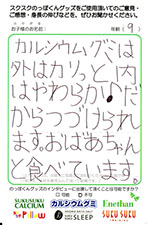 スクスクのっぽくんグッズをご使用頂いてのご意見・
ご感想・身長の伸びなどを、ぜひお聞かせください。
お子様のお名前: 年齢( 9 )
カルシウムグミは
外はカリッと、内
はやわらかいだ
からつづけられ
ます。おばあちゃん
と食べています。
のっぽくんグッズのインタビューに出演して頂くことは可能ですか?
可能 不可
SUKUSUKU
CALCIUM
カルシウムグミ
Enethan
Pillow
SLEEP
SUCU SUCU